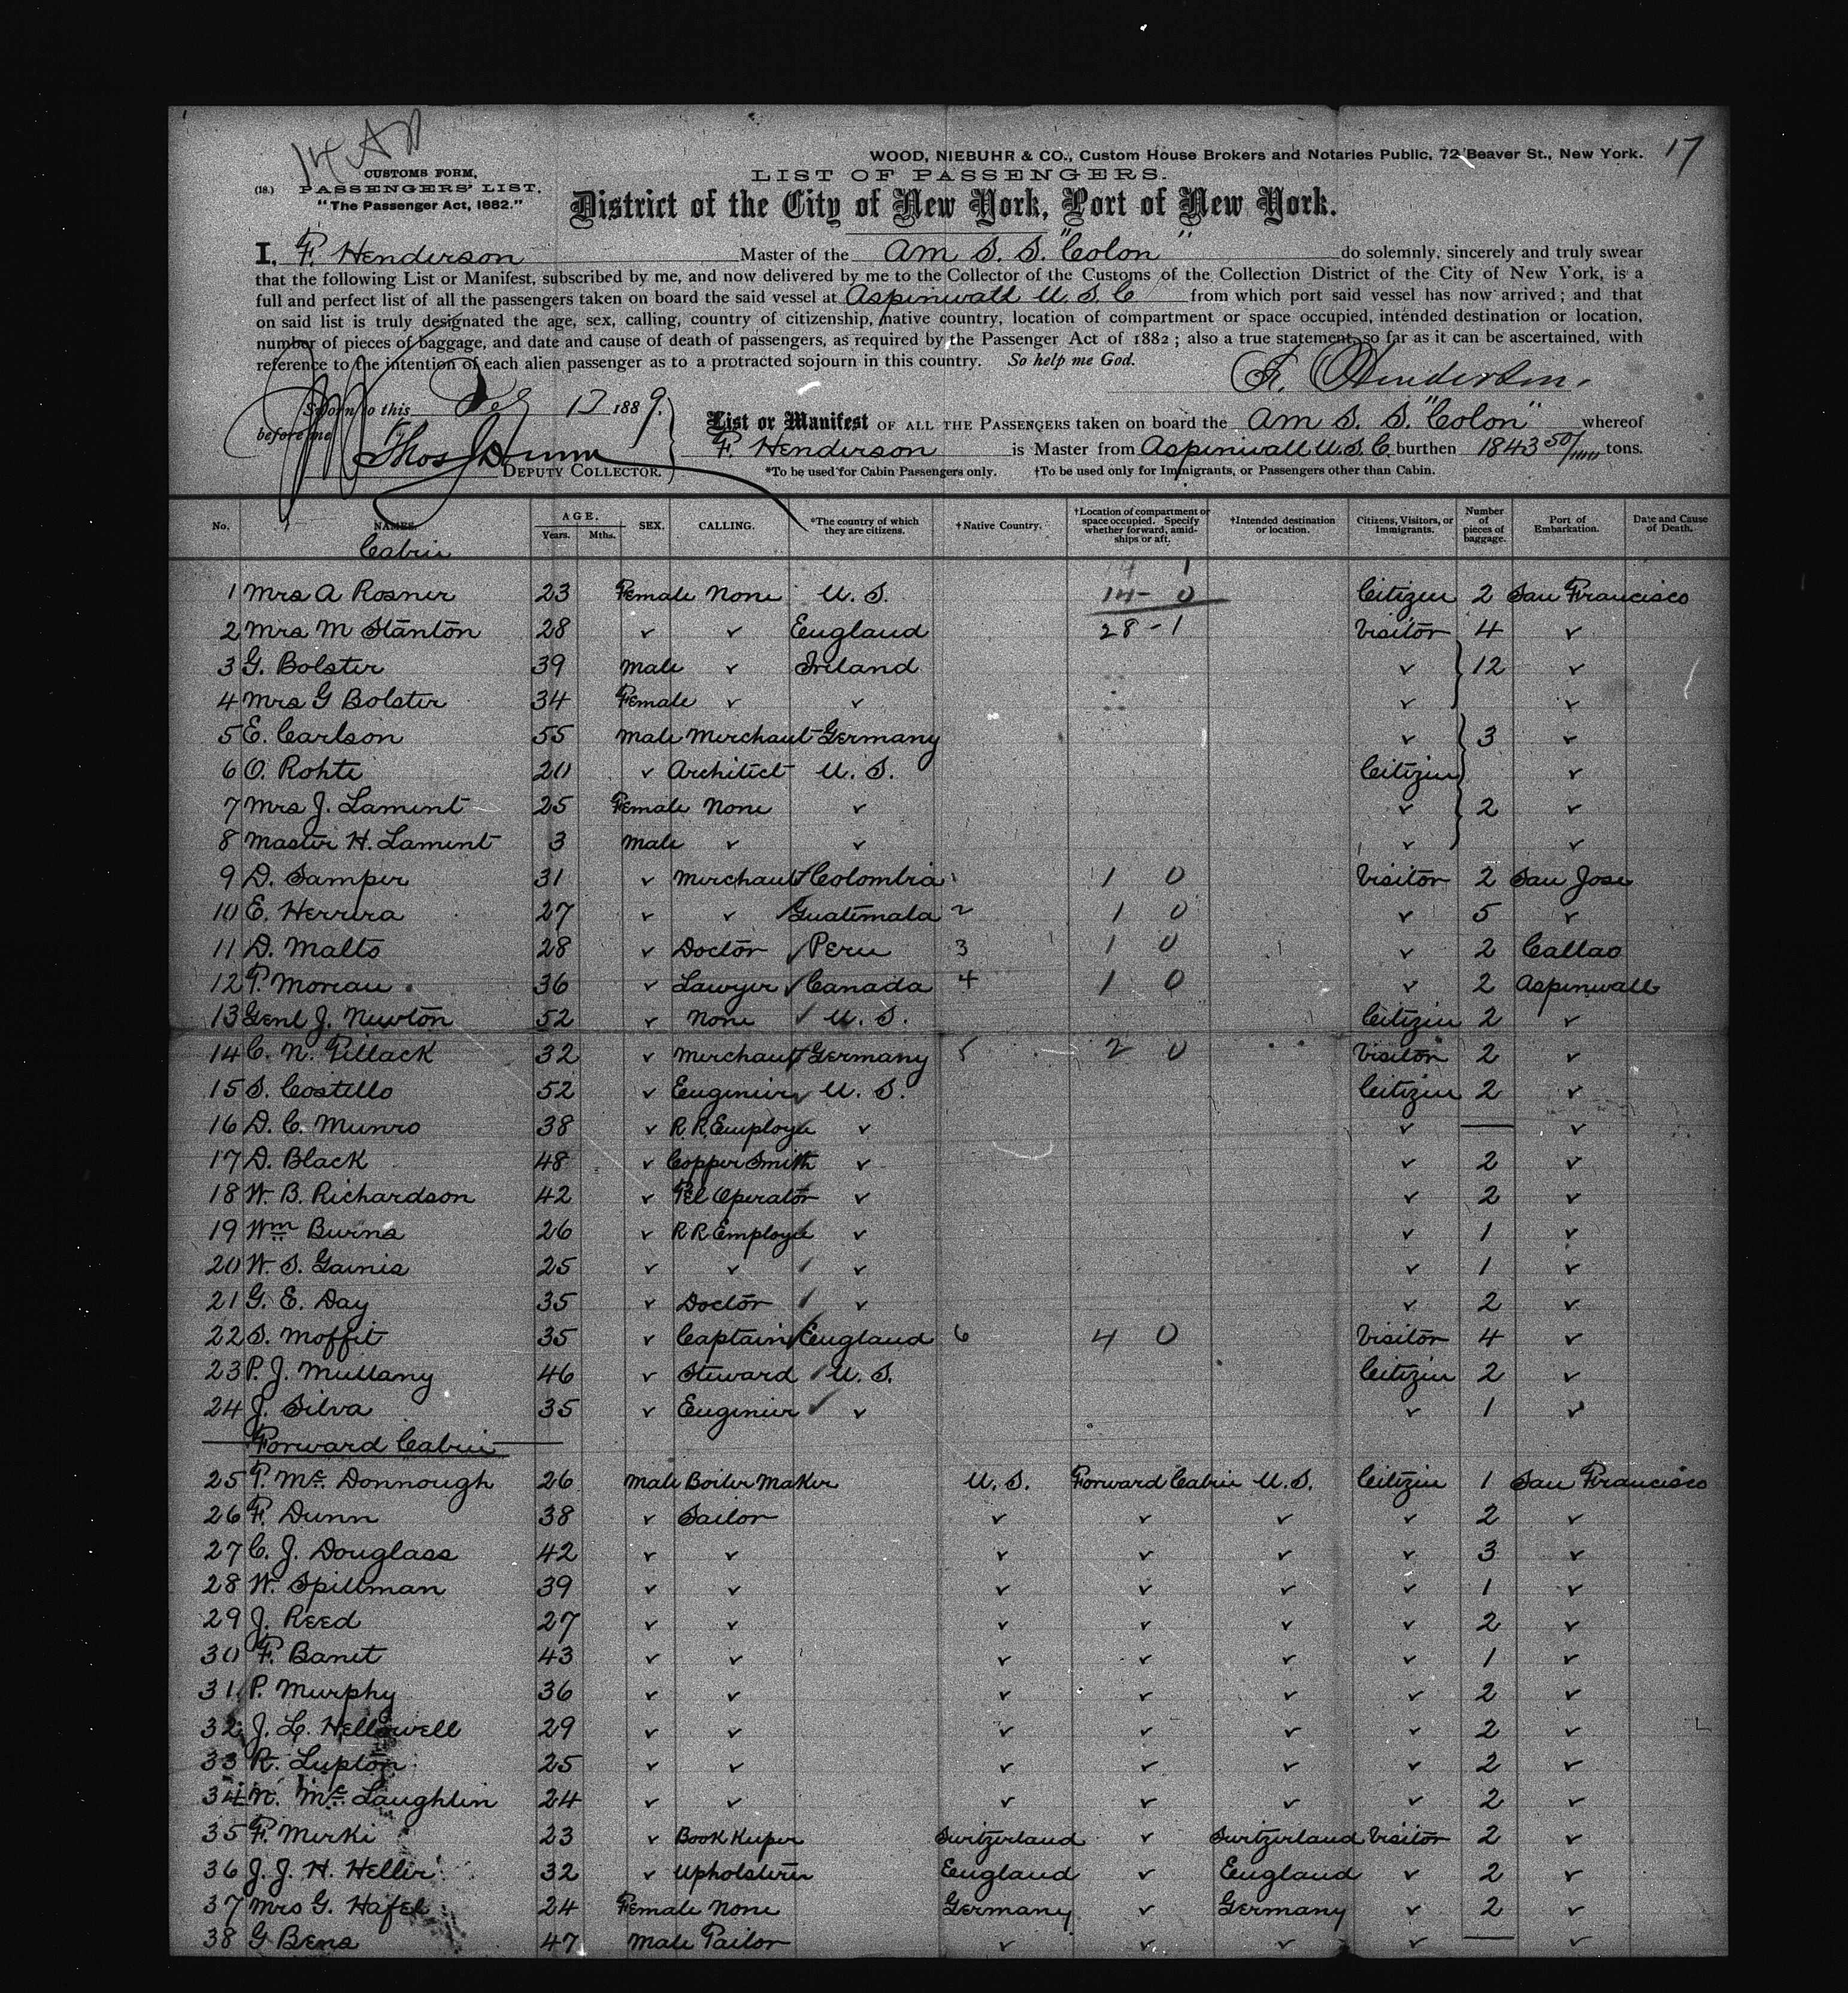 17
WOOD, NIEBUHR & CO., Custom House Brokers and Notaries Public, 72 Beaver St., New York.
CUSTOMS FORM,
(18.) PASSENGERS' LIST.
"The Passenger Act, 1882."
LIST OF PASSENGERS.
District of the City of New York, Port of New York.
I, F. Henderson Master of the Am S. S. "Colon" do solemnly, sincerely and truly swear
that the following List or Manifest, subscribed by me, and now delivered by me to the Collector of the Customs of the Collection District of the City of New York, is a
full and perfect list of all the passengers taken on board the said vessel at Aspinwall U. S. C from which port said vessel has now arrived; and that
on said list is truly designated the age, sex, calling, country of citizenship, native country, location of compartment or space occupied, intended destination or location,
number of pieces of baggage, and date and cause of death of passengers, as required by the Passenger Act of 1882; also a true statement, so far as it can be ascertained, with
reference to the intention of each alien passenger as to a protracted sojourn in this country. So help me God.
F. Henderson
Sworn to this 1889.
before me
Thos J Dunn
DEPUTY COLLECTOR.
List or Manifest OF ALL THE PASSENGERS taken on board the Am S. S. "Colon" whereof
F. Henderson is Master from Aspinwall U. S. C. burthen 1843 50/100 tons.
*To be used for Cabin Passengers only. †To be used only for Immigrants, or Passengers other than Cabin.
No. NAMES. AGE. Years. Mths. SEX. CALLING. *The country of which they are citizens. †Native Country. †Location of compartment or space occupied. Specify whether forward, amidships or aft. †Intended destination or location. Citizens, Visitors, or Immigrants. Number of pieces of baggage. Port of Embarkation. Date and Cause of Death.
Cabin
1 Mrs A Rosner 23 Female None U. S. 14 - 0 Citizen 2 San Francisco
2 Mrs M Stanton 28 ✓ ✓ England 28 - 1 Visitor 4 ✓
3 G. Bolster 39 Male ✓ Ireland ✓ 12 ✓
4 Mrs G Bolster 34 Female ✓ ✓ ✓ ✓
5 E. Carlson 55 Male Merchant Germany ✓ 3 ✓
6 O. Rohte 20 ✓ Architect U. S. Citizen ✓
7 Mrs J. Lament 25 Female None ✓ ✓ 2 ✓
8 Master H. Lament 3 Male ✓ ✓ ✓ ✓
9 D. Samper 31 ✓ Merchant Colombia 1 1 0 Visitor 2 San Jose
10 E. Herrera 27 ✓ ✓ Guatemala 2 1 0 ✓ 5 ✓
11 D. Malto 28 ✓ Doctor Peru 3 1 0 ✓ 2 Callao
12 P. Moreau 36 ✓ Lawyer Canada 4 1 0 ✓ 2 Aspinwall
13 Genl J. Newton 52 ✓ None U. S. Citizen 2 ✓
14 C. N. Pillack 32 ✓ Merchant Germany 5 2 0 Visitor 2 ✓
15 S. Costello 52 ✓ Engineer U. S. Citizen 2 ✓
16 D. C. Munro 38 ✓ R. R. Employe ✓ ✓ — ✓
17 D. Black 48 ✓ Copper Smith ✓ ✓ 2 ✓
18 W. B. Richardson 42 ✓ Tel Operator ✓ ✓ 2 ✓
19 Wm Burns 26 ✓ R R Employe ✓ ✓ 1 ✓
20 W. S. Gaines 25 ✓ ✓ ✓ ✓ 1 ✓
21 G. E. Day 35 ✓ Doctor ✓ ✓ 2 ✓
22 S. Moffit 35 ✓ Captain England 6 4 0 Visitor 4 ✓
23 P. J. Mullany 46 ✓ Steward U. S. Citizen 2 ✓
24 J. Silva 35 ✓ Engineer ✓ ✓ 1 ✓
Forward Cabin
25 P. Mc Donnough 26 Male Boiler Maker U. S. Forward Cabin U. S. Citizen 1 San Francisco
26 F. Dunn 38 ✓ Sailor ✓ ✓ ✓ ✓ 2 ✓
27 C. J. Douglass 42 ✓ ✓ ✓ ✓ ✓ ✓ 3 ✓
28 W. Spillman 39 ✓ ✓ ✓ ✓ ✓ ✓ 1 ✓
29 J. Reed 27 ✓ ✓ ✓ ✓ ✓ ✓ 2 ✓
30 F. Banet 43 ✓ ✓ ✓ ✓ ✓ ✓ 1 ✓
31 P. Murphy 36 ✓ ✓ ✓ ✓ ✓ ✓ 2 ✓
32 J. L. Hellowell 29 ✓ ✓ ✓ ✓ ✓ ✓ 2 ✓
33 R. Lupton 25 ✓ ✓ ✓ ✓ ✓ ✓ 2 ✓
34 N. Mc Laughlin 24 ✓ ✓ ✓ ✓ ✓ ✓ 2 ✓
35 F. Merki 23 ✓ Book Keeper Switzerland ✓ Switzerland Visitor 2 ✓
36 J. J. H. Heller 32 ✓ Upholsterer England ✓ England ✓ 2 ✓
37 Mrs G. Hafel 24 Female None Germany ✓ Germany ✓ 2 ✓
38 G Bens 47 Male Tailor ✓ ✓ ✓ ✓ — ✓